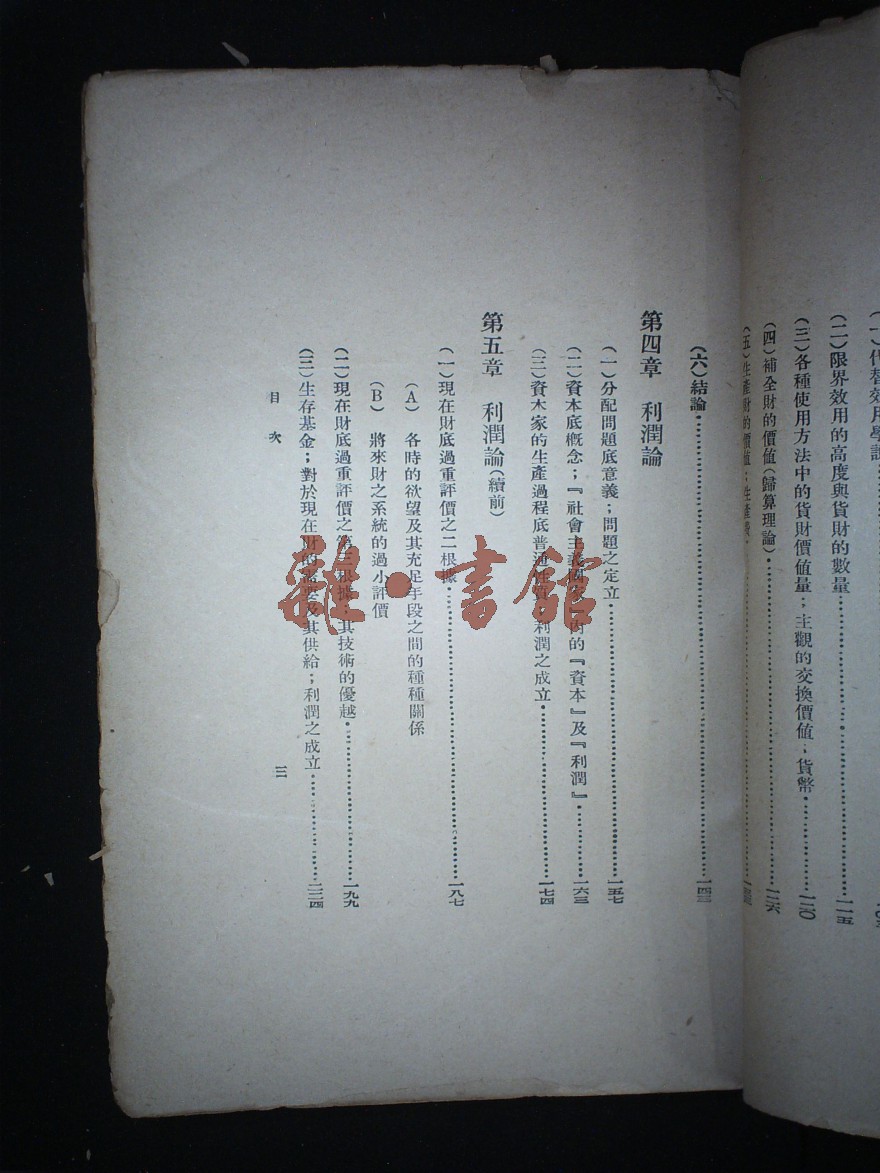 (一)代替效用學說
(二)限界效用的高度與貨財的數量……一一五
(三)各種使用方法中的貨財價值量；主觀的交換價值；貨幣……一二〇
(四)補全財的價值(歸算理論)……一二六
(五)生產財的價值；生產費
(六)結論……一四三
第四章 利潤論
(一)分配問題底意義；問題之定立……一五七
(二)資本底概念；『社會主義國家』內的『資本』及『利潤』……一六三
(三)資本家的生產過程底普通性質；利潤之成立……一七四
第五章 利潤論(續前)
(一)現在財底過重評價之二根據……一八七
(A) 各時的欲望及其充足手段之間的種種關係
(B) 將來財之系統的過小評價
(二)現在財底過重評價之第三根據；其技術的優越……一九九
(三)生存基金；對於現在財的需要及其供給；利潤之成立……二二四
目次 三
雜·書館